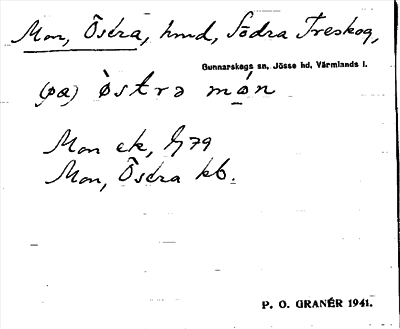 Mon, Östra, hmd, Södra Treskog,
Gunnarskogs sn, Jösse hd, Värmlands l.
(pa) östrə mon
Mon ek, 79
Mon, Östra kb.
P. O. GRANÉR 1941.